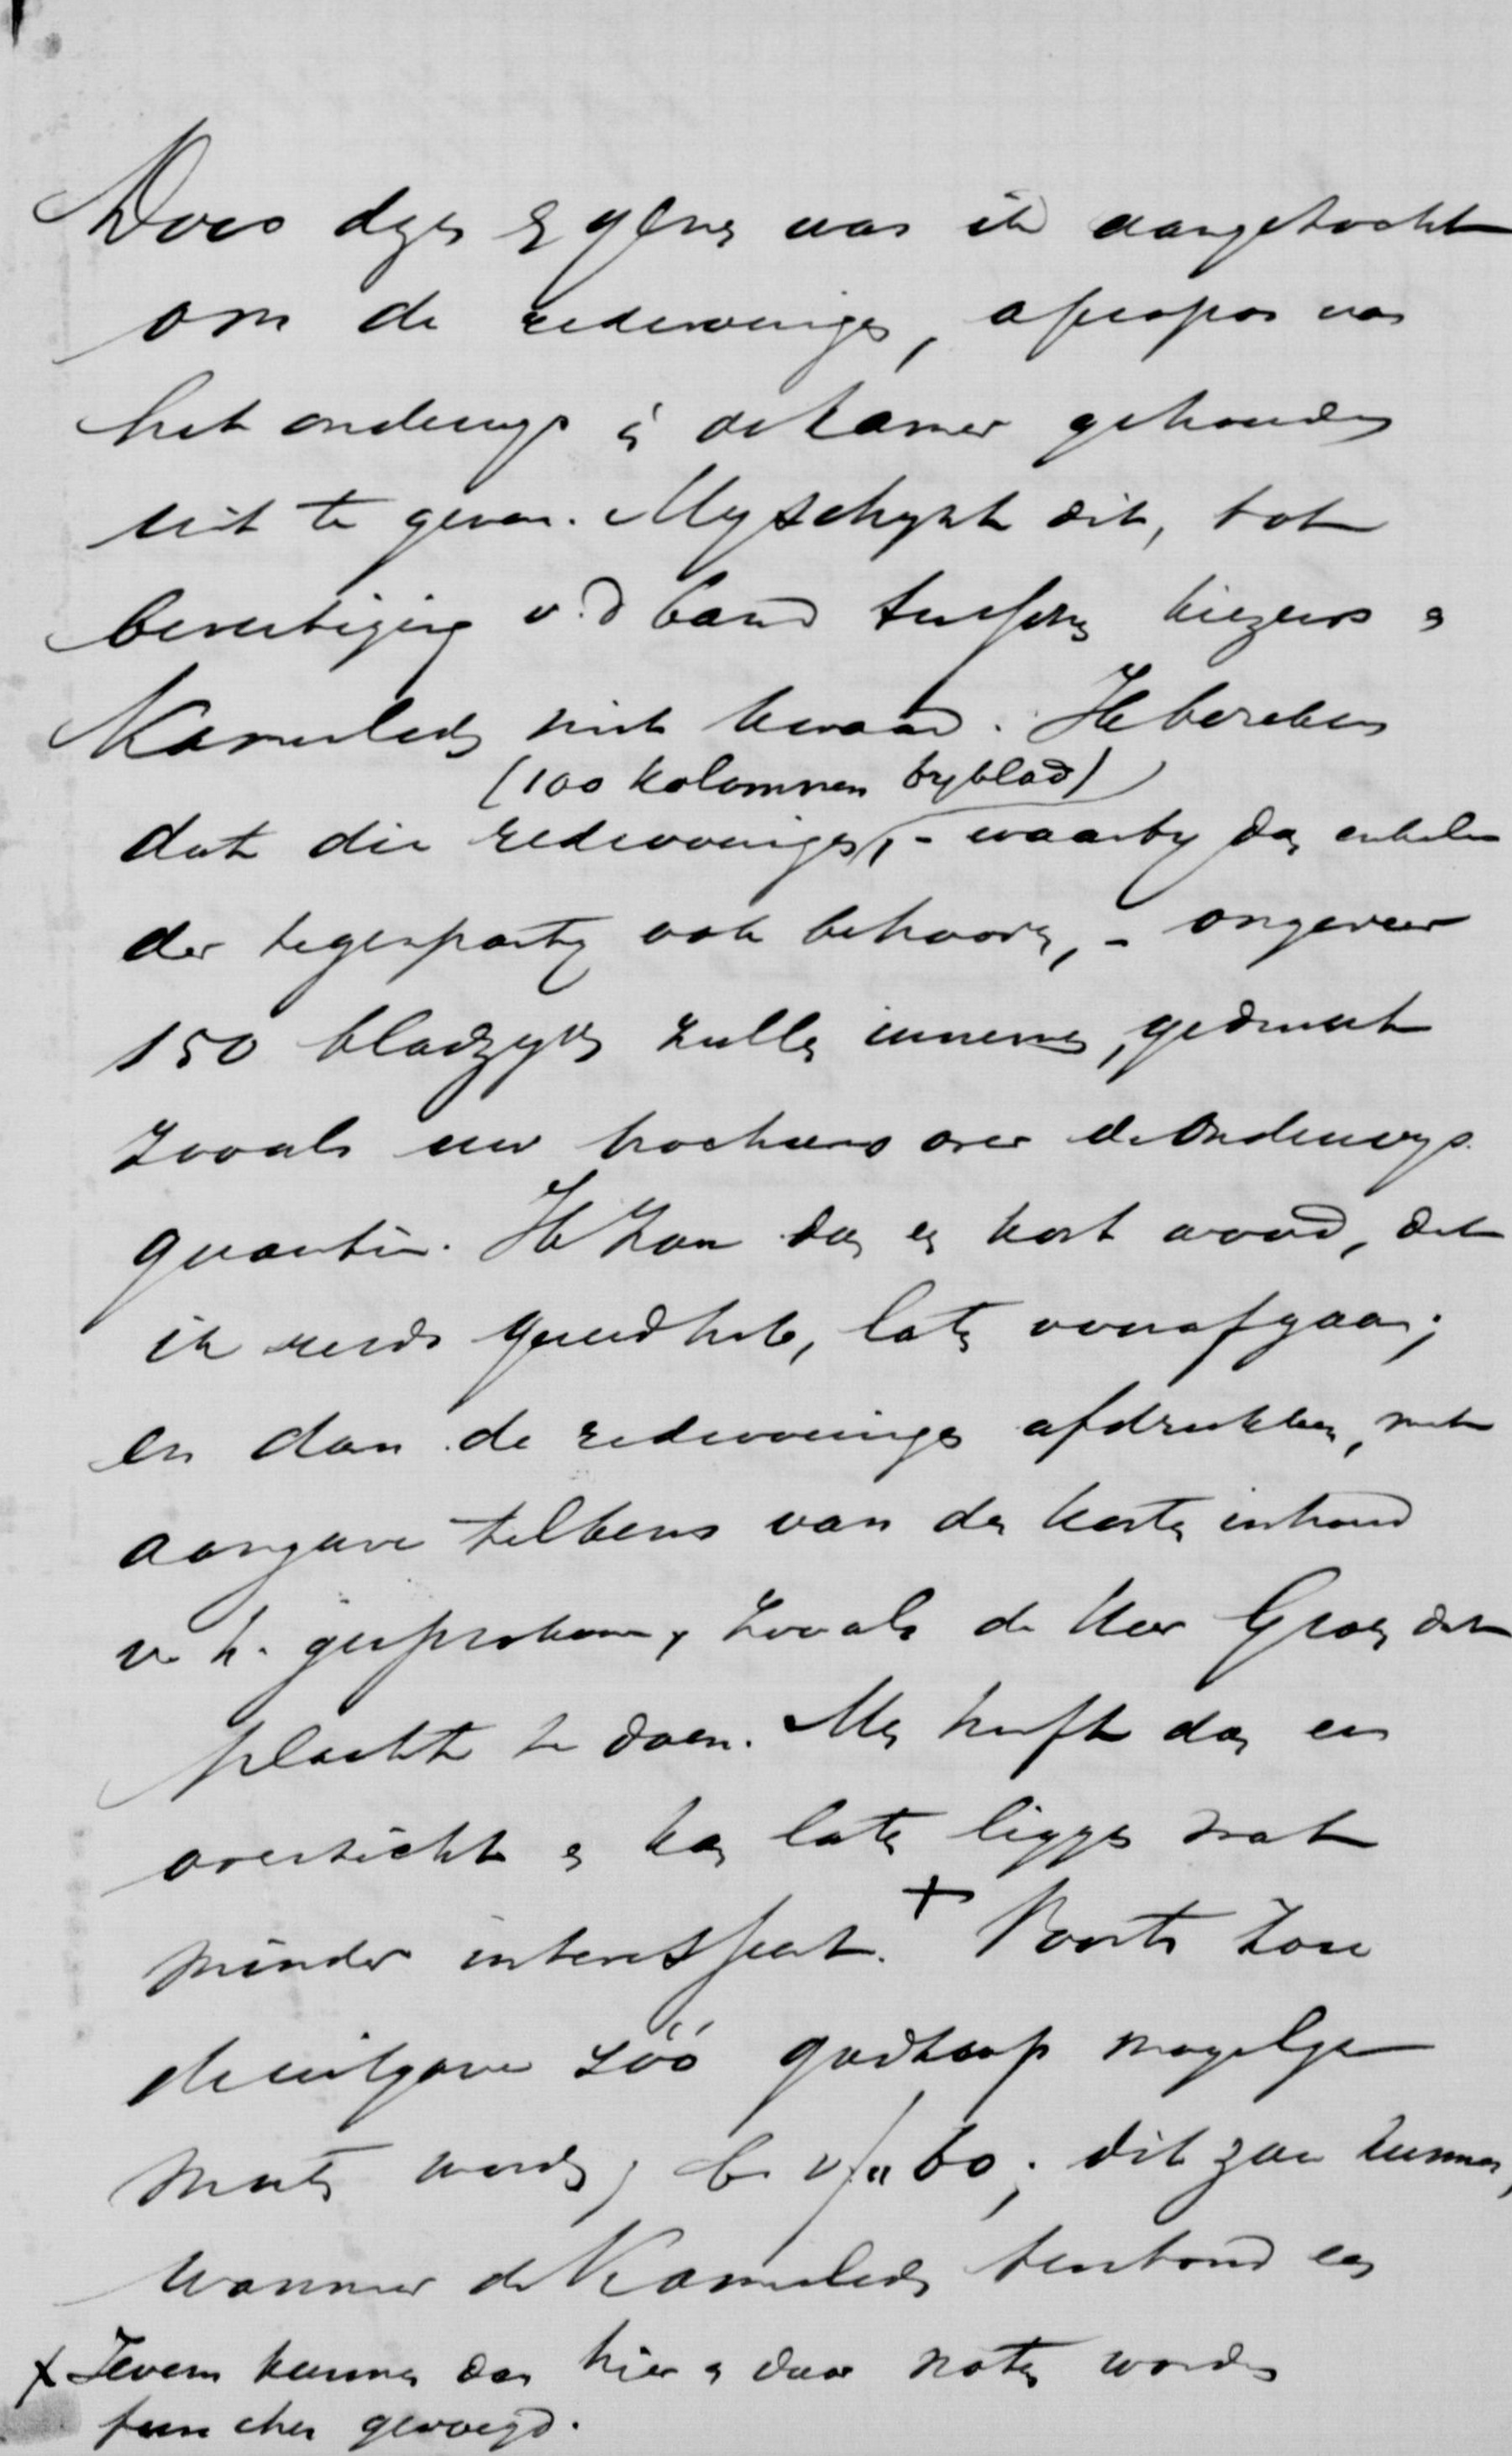 Door dezen & genen was ik aangezocht
om de redevoeringen, apropos van
het onderwijs in de kamer gehouden
uit te geven. Mij schijnt dit, tot
bevestiging v.d band tusschen kiezers &
Kamerleden niet kwaad. Ik bereken
(100 kolommen byblad)
dat die redevoeringen, - waarby dan enkele
der tegenparty ook behooren, - ongeveer
150 bladzyden zullen innemen, gedrukt
zooals uw brochure over de Onderwys-
quaestie. Ik zou dan een kort woord, dat
ik reeds gereed heb, laten voorafgaan;
en dan de redevoeringen afdrukken, met
aangave telkens van den korten inhoud
v. h. gesprokene, zooals de heer Groen dat
placht te doen. Men heeft dan een
overzicht & kan laten liggen wat
minder interesseert. + Voorts zou
de uitgave zóó goedkoop mogelijk
moeten worden; b.v. f " 60; dit zou kunnen,
wanneer de Kamerleden bestond een
x Tevens kunnen dan hier & daar noten worden
tusschen gevoegd.